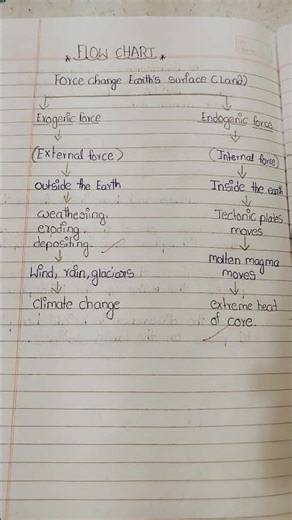 FLOW CHART
Force change Earth's surface (Land)
Exogenic force
Endogenic force
(External force)
(Internal force)
outside the Earth
Inside the earth
weathesing.
eroding.
depositing.
Tectonic plates
moves
Wind, rain, glaciors
molten magma
moves
climate change
extreme head
of core.